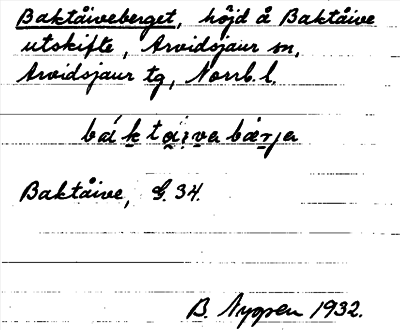 Baktåiveberget, höjd å Baktåive
utskifte, Arvidsjaur sn,
Arvidsjaur tg, Norrb. l.
báktai̯vabærja
Baktåive, G. 34.
B. Nygren 1932.